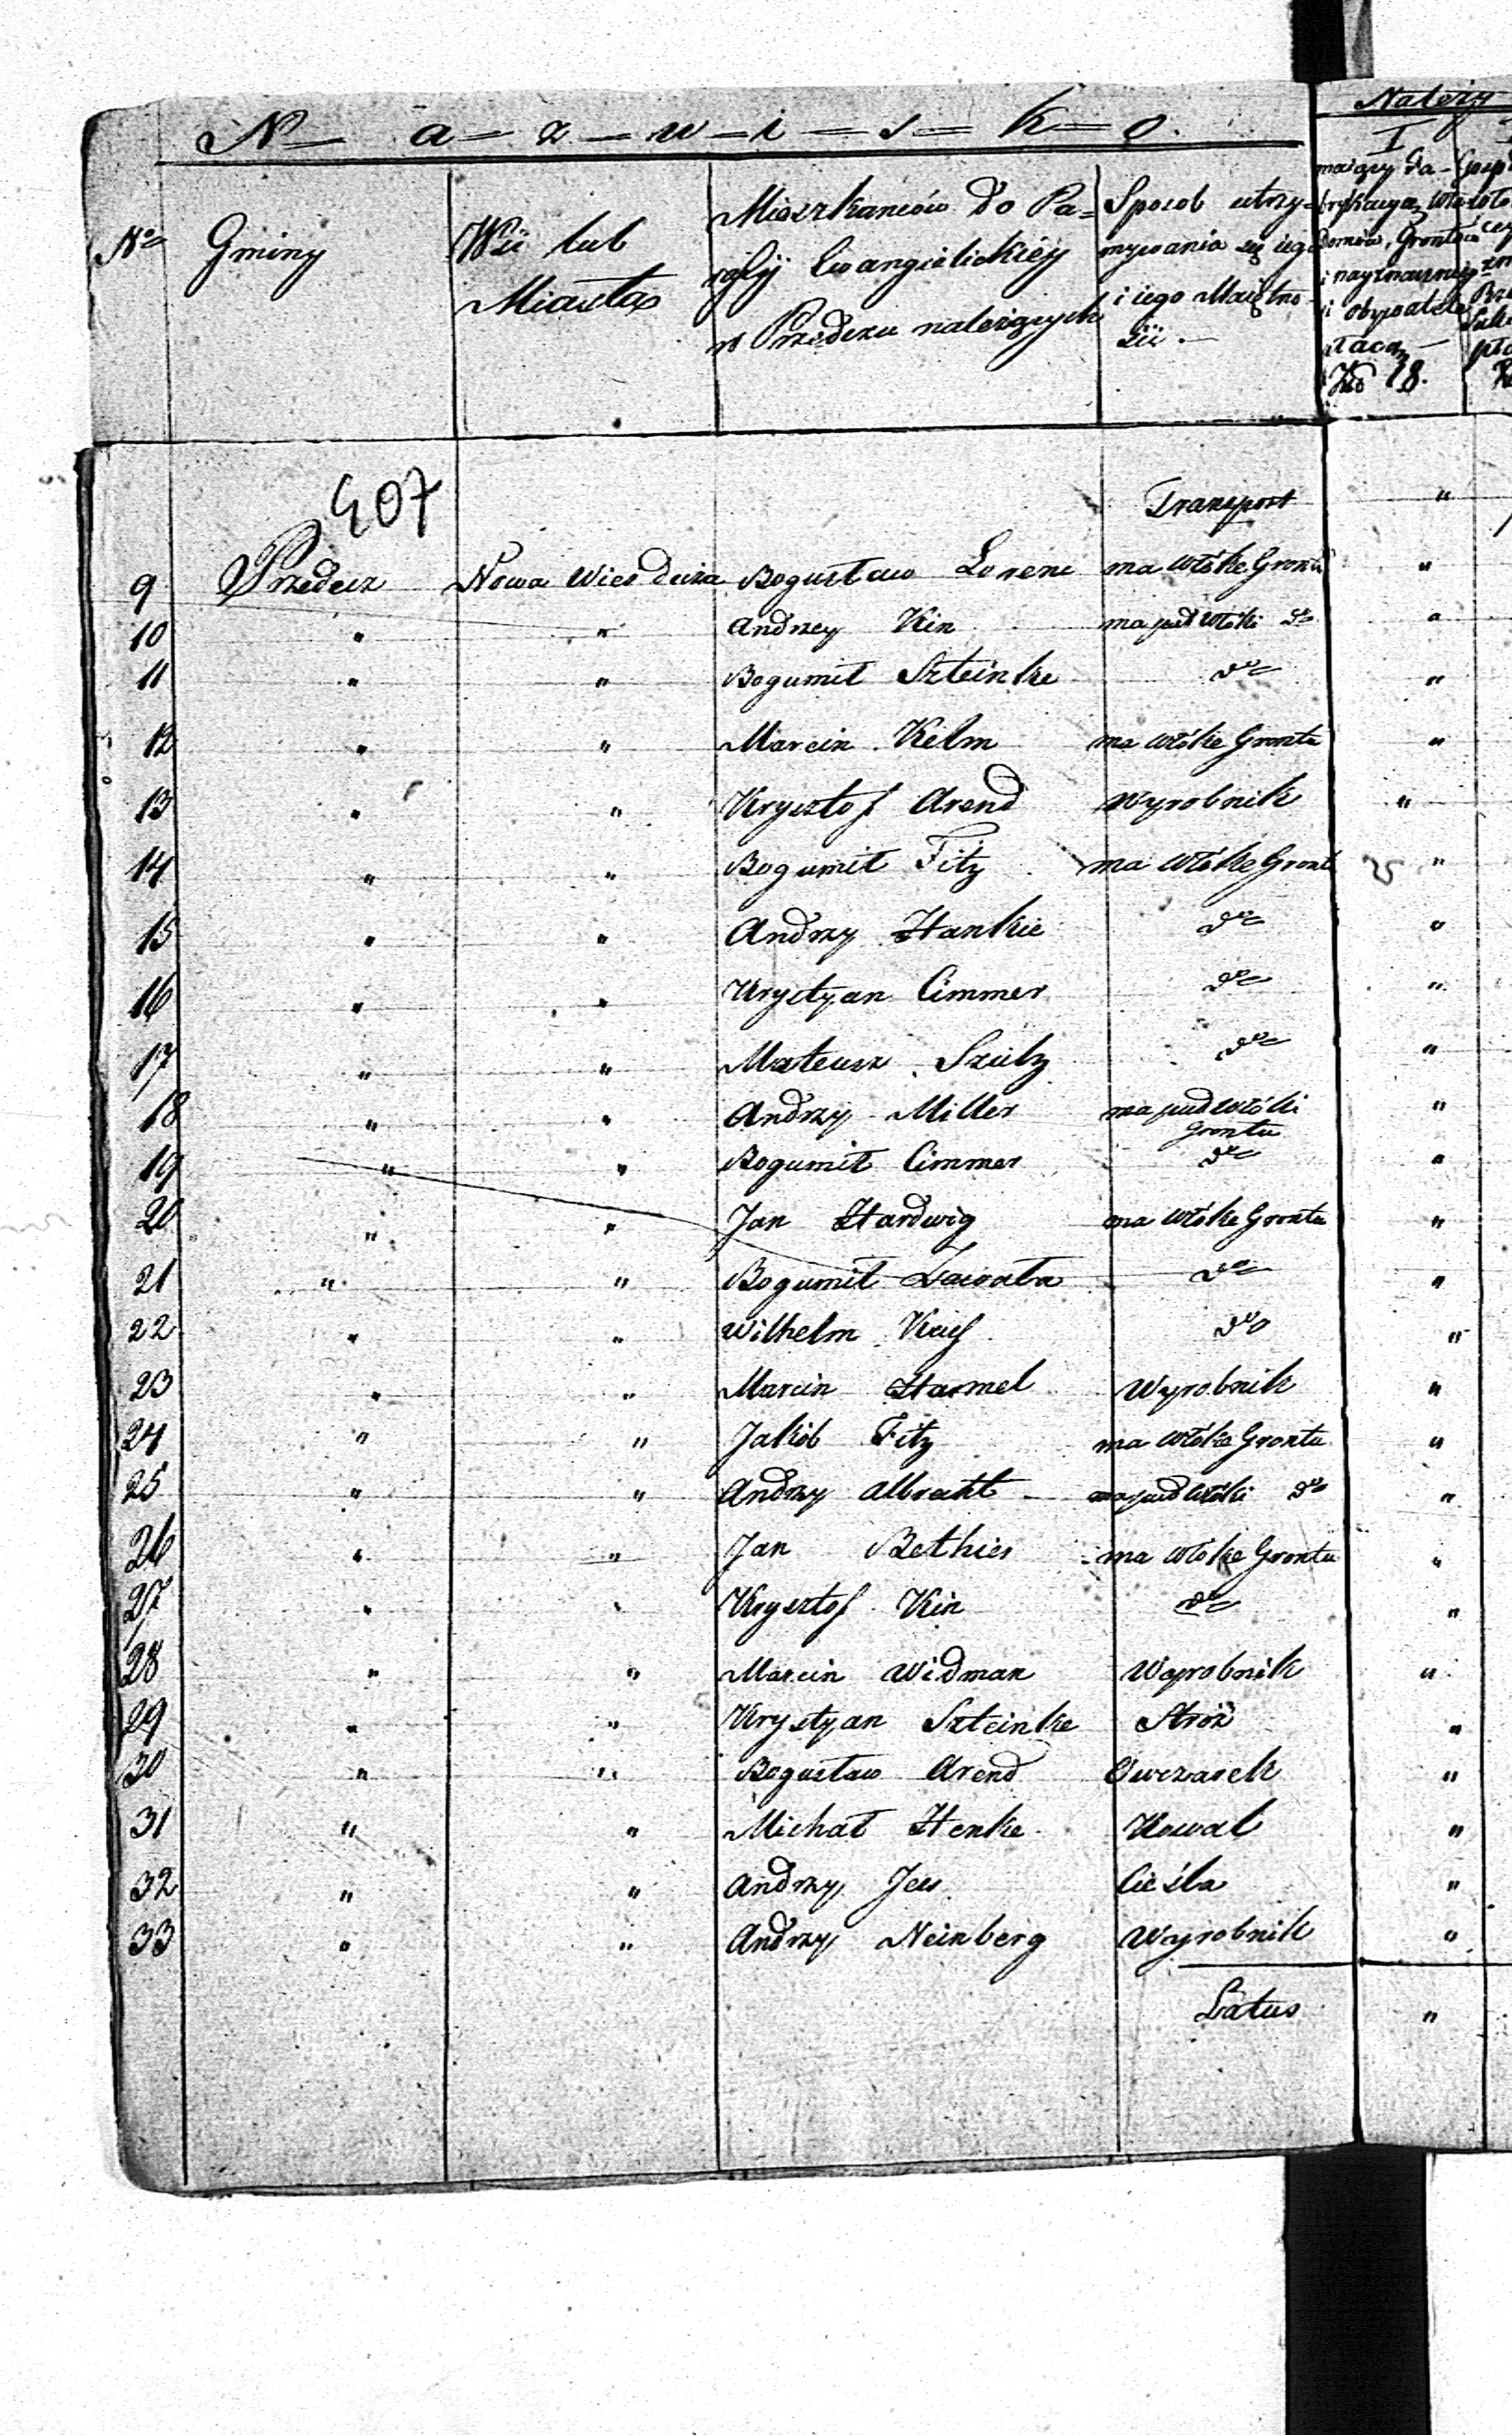 N - a - z - w - i - s - k - o.
Należy
No Gminy
Wsi lub
Miasta
Mieszkańców do Pa=
rafij Ewangielickiey
w Przedczu należących
Sposob utrzy-
mywania się iego
i iego Maiętno-
ści.-
I
domów, Grontów
i obywatele
płacą -
18.
407
Transport "
9 Przedecz Nowa Wies duża Bogusław Lorenc ma włóke Grontu "
10 " " Andrzey Kin ma puł włóki do "
11 " " Bogumił Szteinke do "
12 " " Marcin Kelm ma włóke Grontu "
13 " " Krysztof Arend Wyrobnik "
14 " " Bogumił Fitz ma włóke Grontu "
15 " " Andrzy Hankie do "
16 " " Krystyan Cimmer do "
17 " " Mateusz Szulz do "
18 " " Andrzy Miller ma puł włóki "
Grontu
19 " " Bogumił Cimmer do "
20 " " Jan Hardwig ma włóke Grontu "
21 " " Bogumił Zawata do "
22 " " Wilhelm do "
23 " " Marcin Hamel Wyrobnik "
24 " " Jakób Fitz ma włóke Grontu "
25 " " Andrzy Albracht ma puł włóki do "
26 " " Jan Bethier ma włóke Grontu "
27 " " Krysztof Kin do "
28 " " Marcin Widman Wyrobnik "
29 " " Krystyan Szteinke Stróż "
30 " " Bogusław Arend Owczarek "
31 " " Michał Henke Kowal "
32 " " Andrzy Jes Cieśla "
33 " " Andrzy Neinberg Wyrobnik "
Latus "